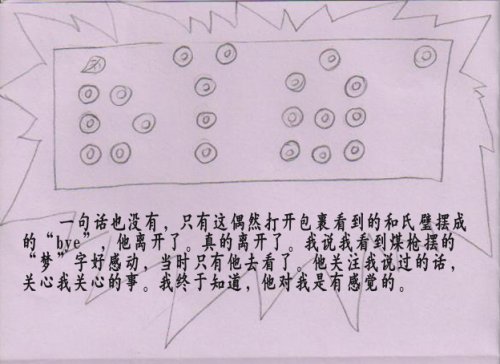 一句话也没有，只有这偶然打开包裹看到的和氏璧摆成
的“bye”，他离开了。真的离开了。我说我看到煤枪摆的
“梦”字好感动，当时只有他去看了。他关注我说过的话，
关心我关心的事。我终于知道，他对我是有感觉的。